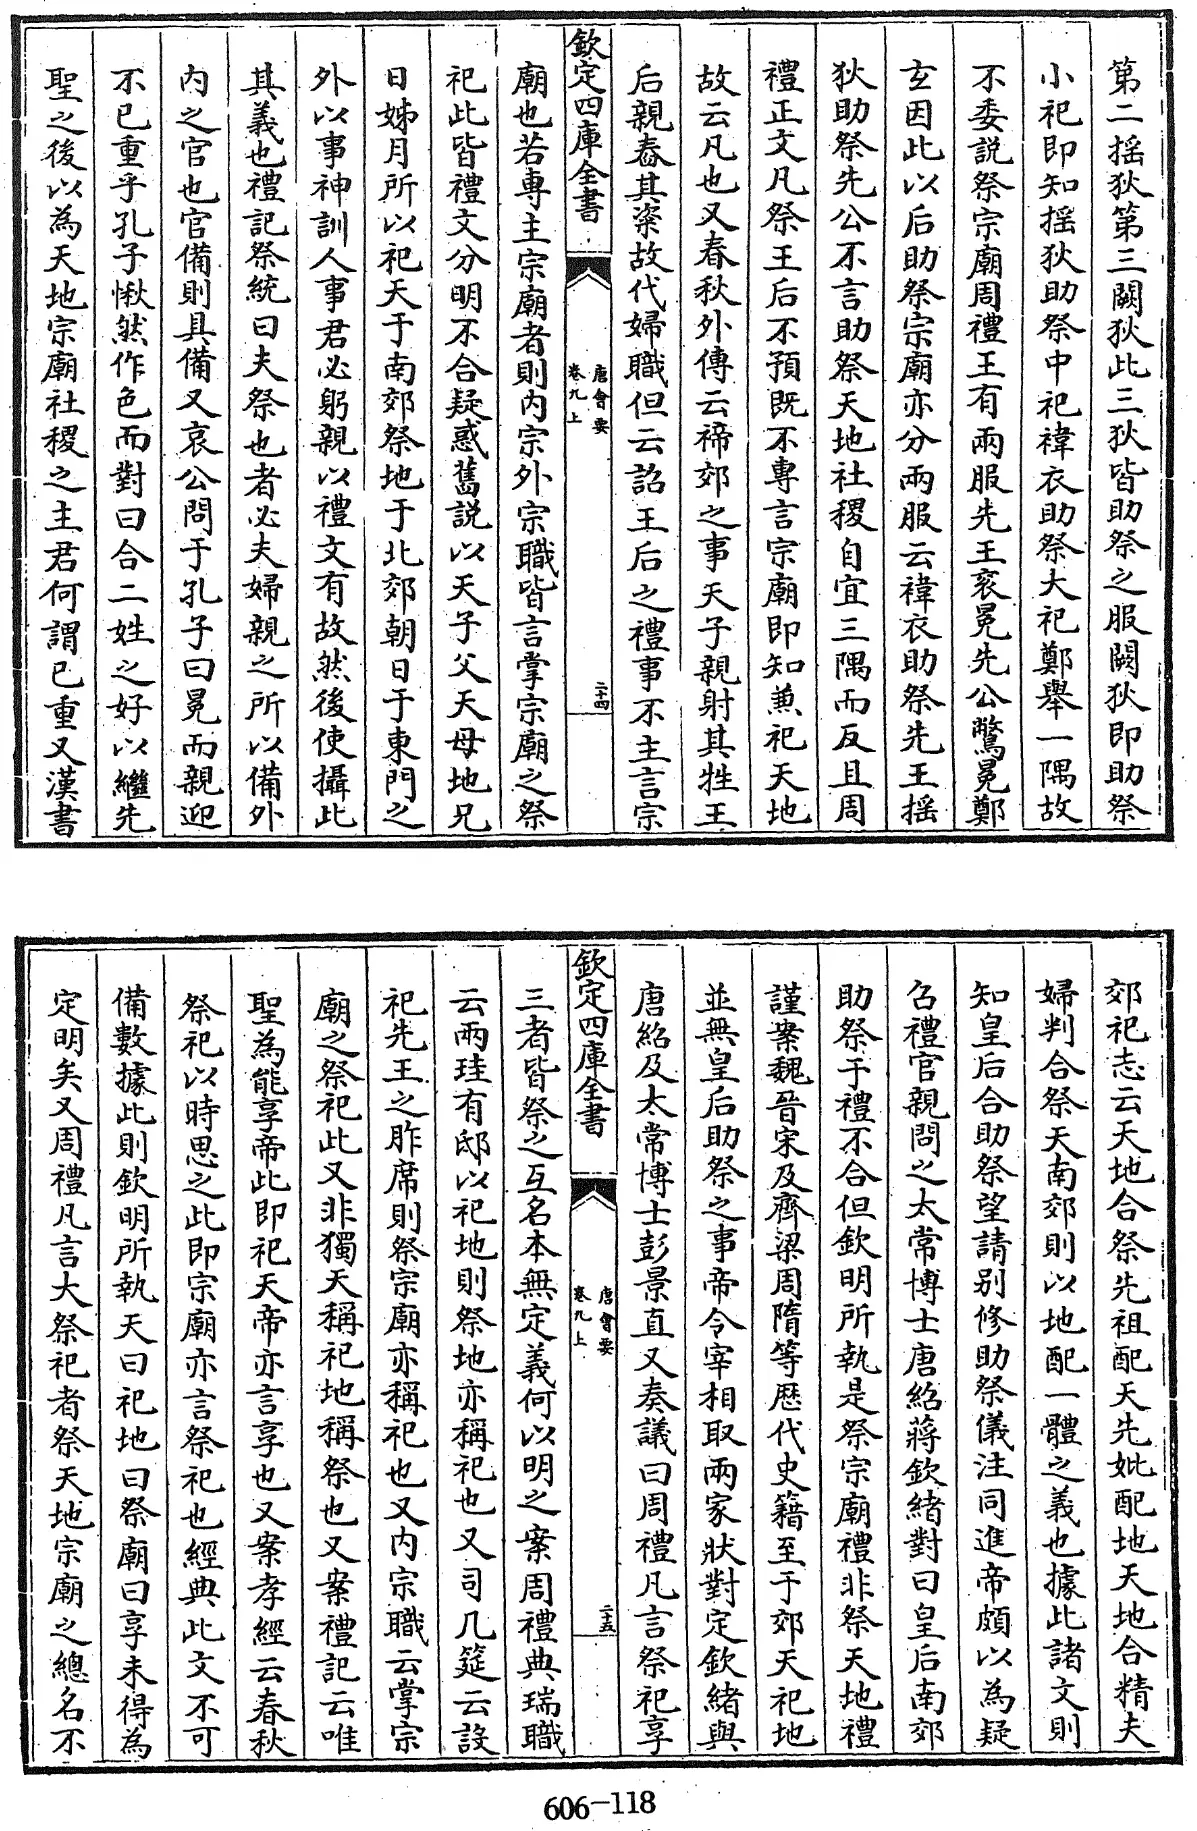 第二揺狄第三闕狄此三狄皆助祭之服闕狄即助祭
小祀即知揺狄助祭中祀褘衣助祭大祀鄭舉一隅故
不委説祭宗廟周禮王有兩服先王衮冕先公鷩冕鄭
玄因此以后助祭宗廟亦分兩服云褘衣助祭先王揺
狄助祭先公不言助祭天地社稷自宜三隅而反且周
禮正文凡祭王后不預既不專言宗廟即知兼祀天地
故云凡也又春秋外傳云禘郊之事天子親射其牲王
后親舂其粢故代婦職但云詔王后之禮事不主言宗
欽定四庫全書
唐會要
卷九上
二十四
廟也若專主宗廟者則内宗外宗職皆言掌宗廟之祭
祀此皆禮文分明不合疑惑舊説以天子父天母地兄
日姊月所以祀天于南郊祭地于北郊朝日于東門之
外以事神訓人事君必躬親以禮文有故然後使攝此
其義也禮記祭統曰夫祭也者必夫婦親之所以備外
内之官也官備則具備又哀公問于孔子曰冕而親迎
不已重乎孔子愀然作色而對曰合二姓之好以繼先
聖之後以為天地宗廟社稷之主君何謂已重又漢書
郊祀志云天地合祭先祖配天先妣配地天地合精夫
婦判合祭天南郊則以地配一體之義也據此諸文則
知皇后合助祭望請别修助祭儀注同進帝頗以為疑
召禮官親問之太常博士唐紹蔣欽緒對曰皇后南郊
助祭于禮不合但欽明所執是祭宗廟禮非祭天地禮
謹案魏晉宋及齊梁周隋等歴代史籍至于郊天祀地
並無皇后助祭之事帝令宰相取兩家狀對定欽緒與
唐紹及太常博士彭景直又奏議曰周禮凡言祭祀享
欽定四庫全書
唐會要
卷九上
二十五
三者皆祭之互名本無定義何以明之案周禮典瑞職
云兩珪有邸以祀地則祭地亦稱祀也又司几筵云設
祀先王之胙席則祭宗廟亦稱祀也又内宗職云掌宗
廟之祭祀此又非獨天稱祀地稱祭也又案禮記云唯
聖為能享帝此即祀天帝亦言享也又案孝經云春秋
祭祀以時思之此即宗廟亦言祭祀也經典此文不可
備數據此則欽明所執天曰祀地曰祭廟曰享未得為
定明矣又周禮凡言大祭祀者祭天地宗廟之總名不
606-118